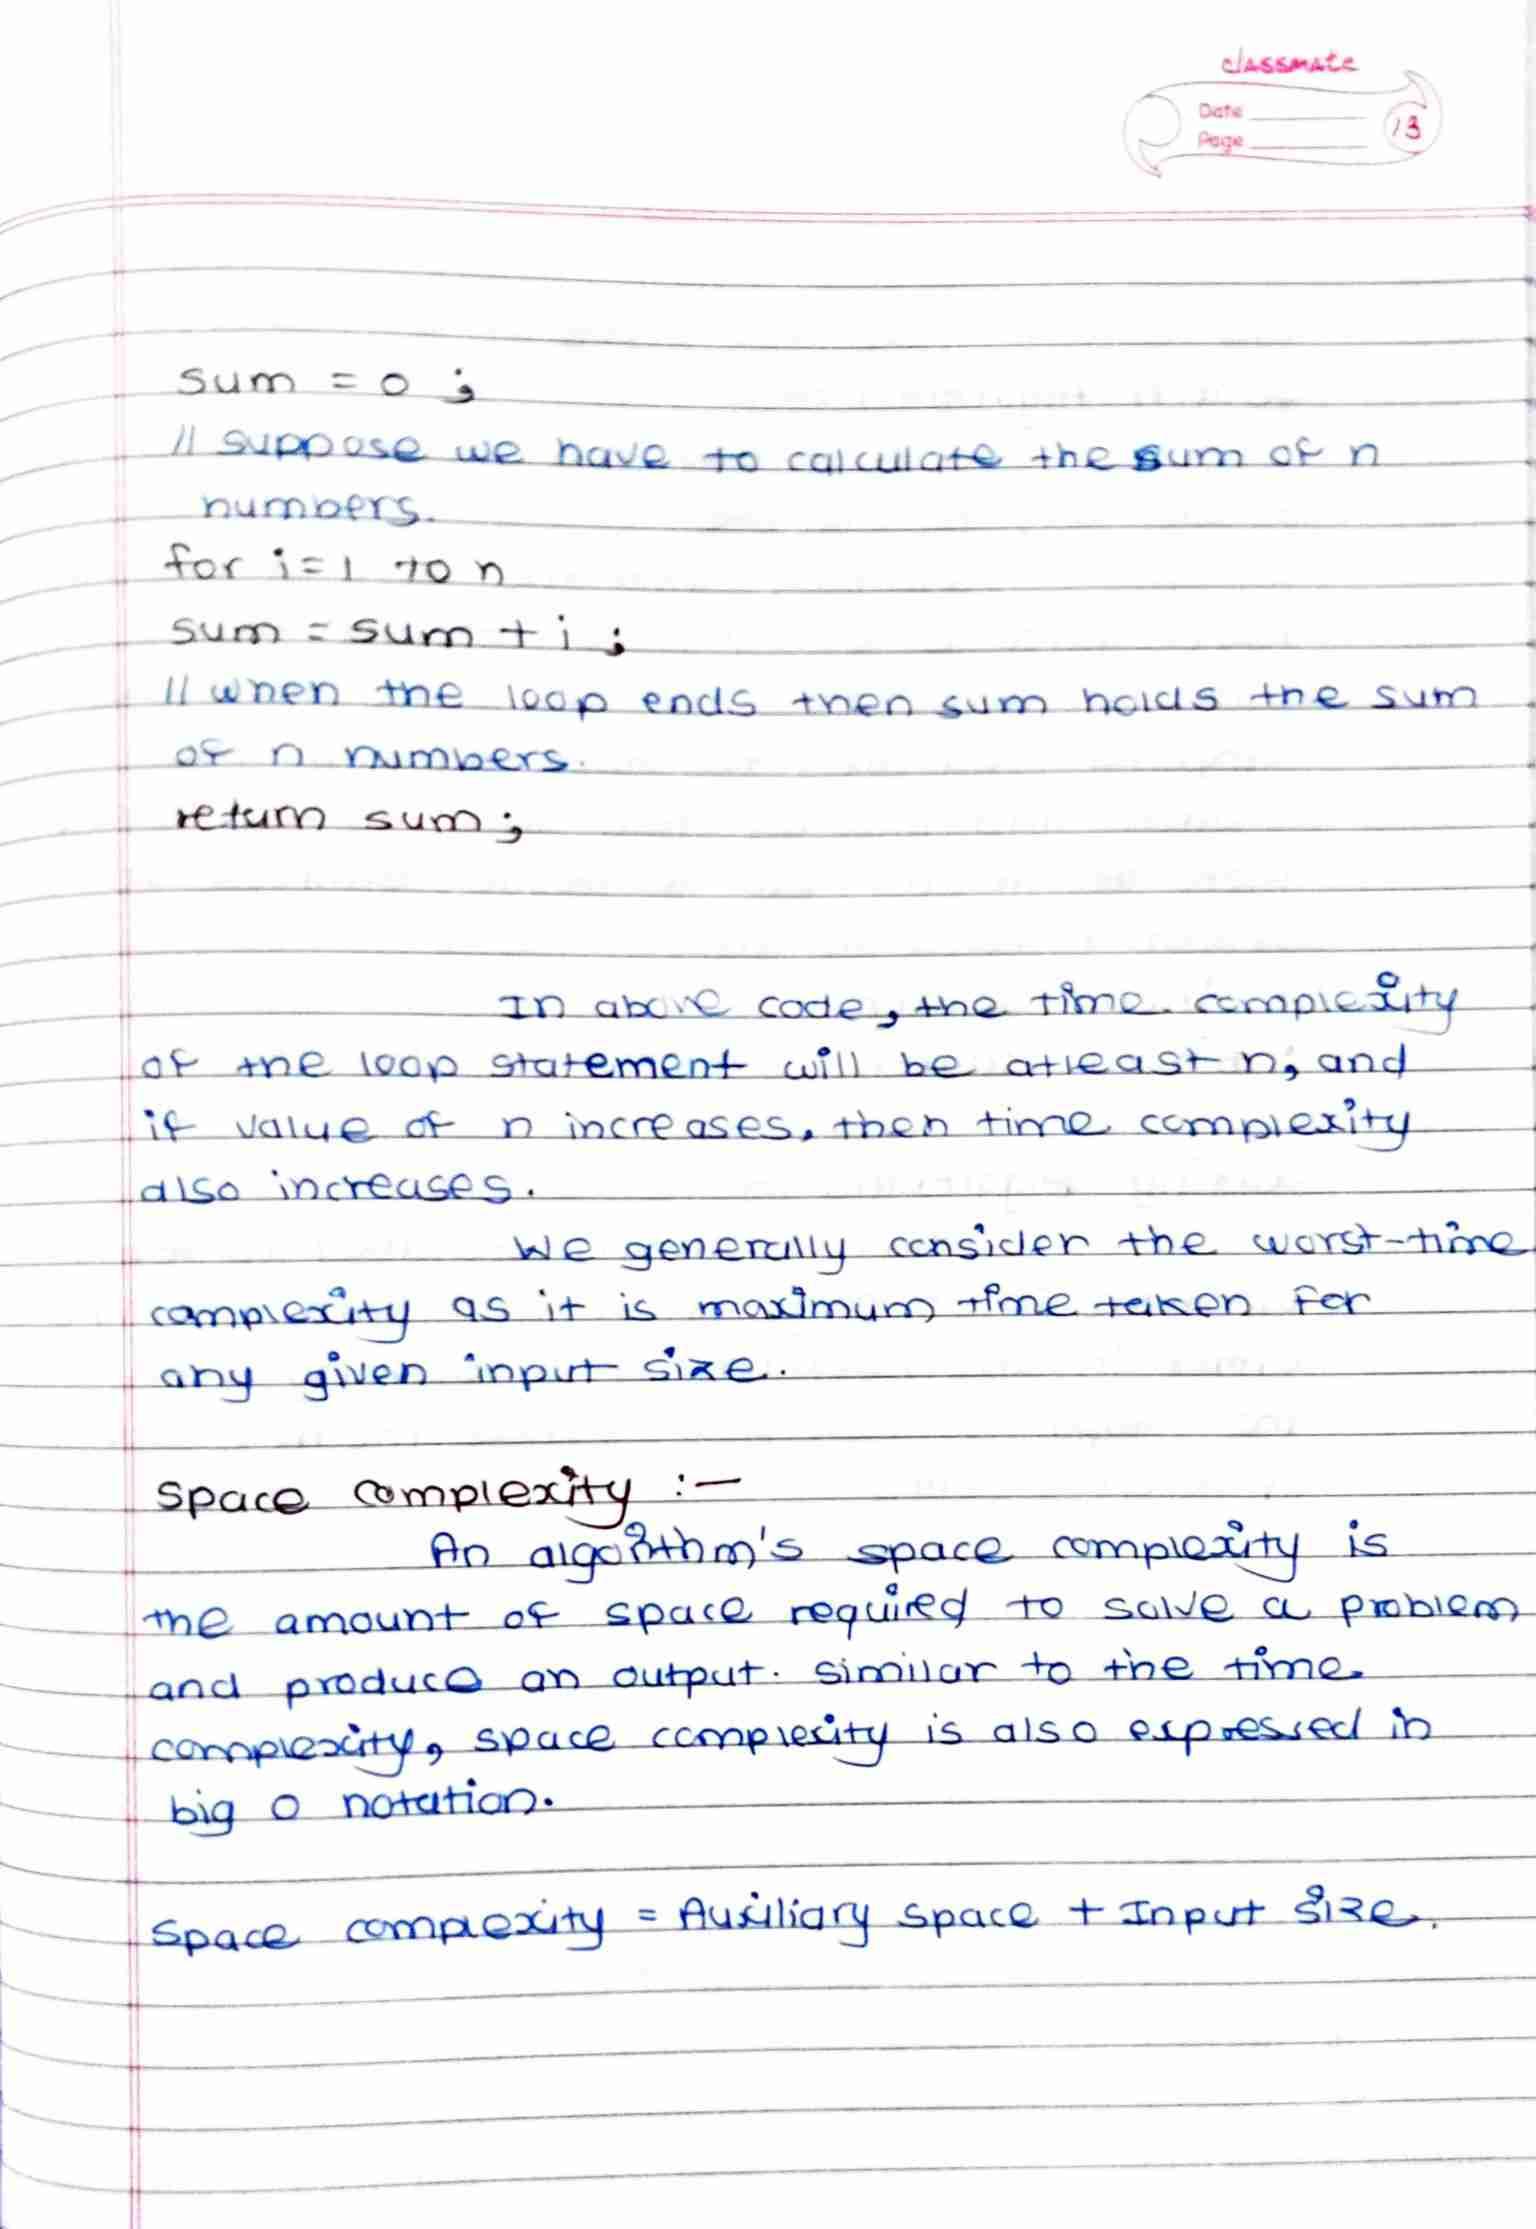 classmate
Date
Page
13
sum = 0 ;
// suppose we have to calculate the sum of n
numbers.
for i = 1 to n
sum = sum + i ;
// when the loop ends then sum holds the sum
of n numbers.
return sum ;
In above code, the time complexity
of the loop statement will be atleast n, and
if value of n increases, then time complexity
also increases.
We generally consider the worst-time
complexity as it is maximum time taken for
any given input size.
Space complexity :-
An algorithm's space complexity is
the amount of space required to solve a problem
and produce an output. similar to the time
complexity, space complexity is also expressed in
big O notation.
Space complexity = Auxiliary space + Input size.